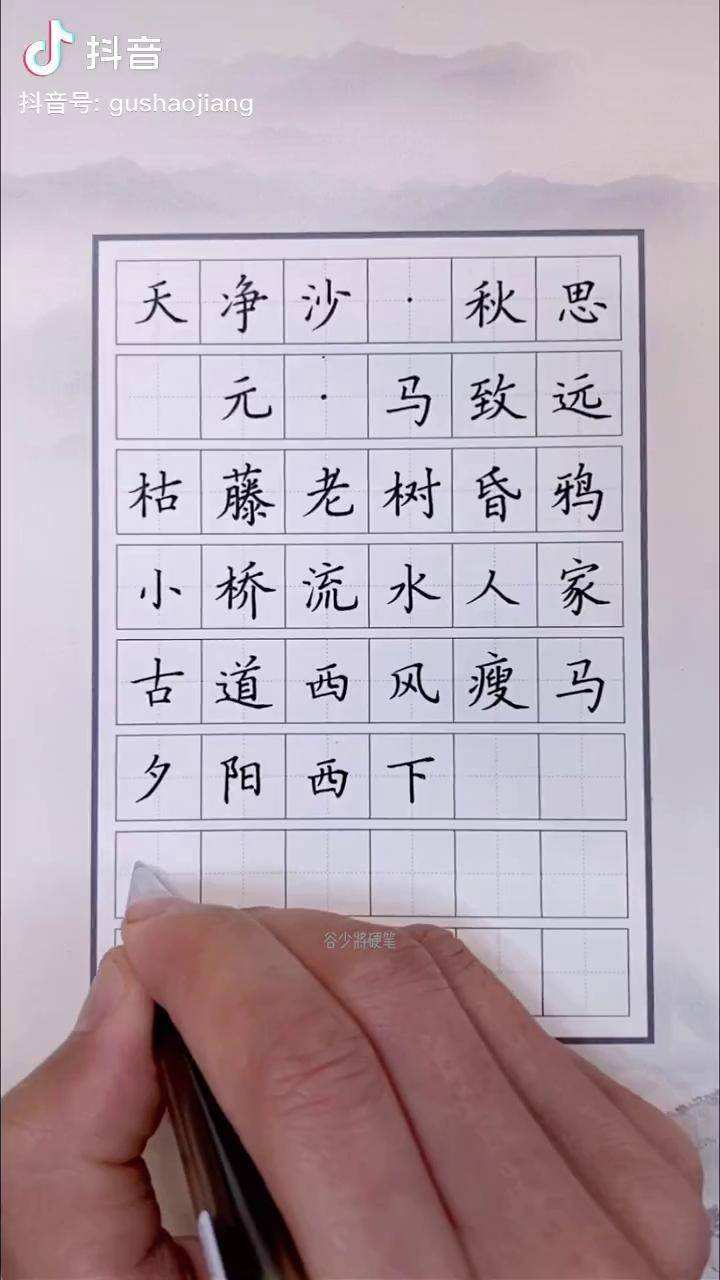 抖音
抖音号: gushaojiang
天净沙·秋思
元·马致远
枯藤老树昏鸦
小桥流水人家
古道西风瘦马
夕阳西下
谷少將硬笔